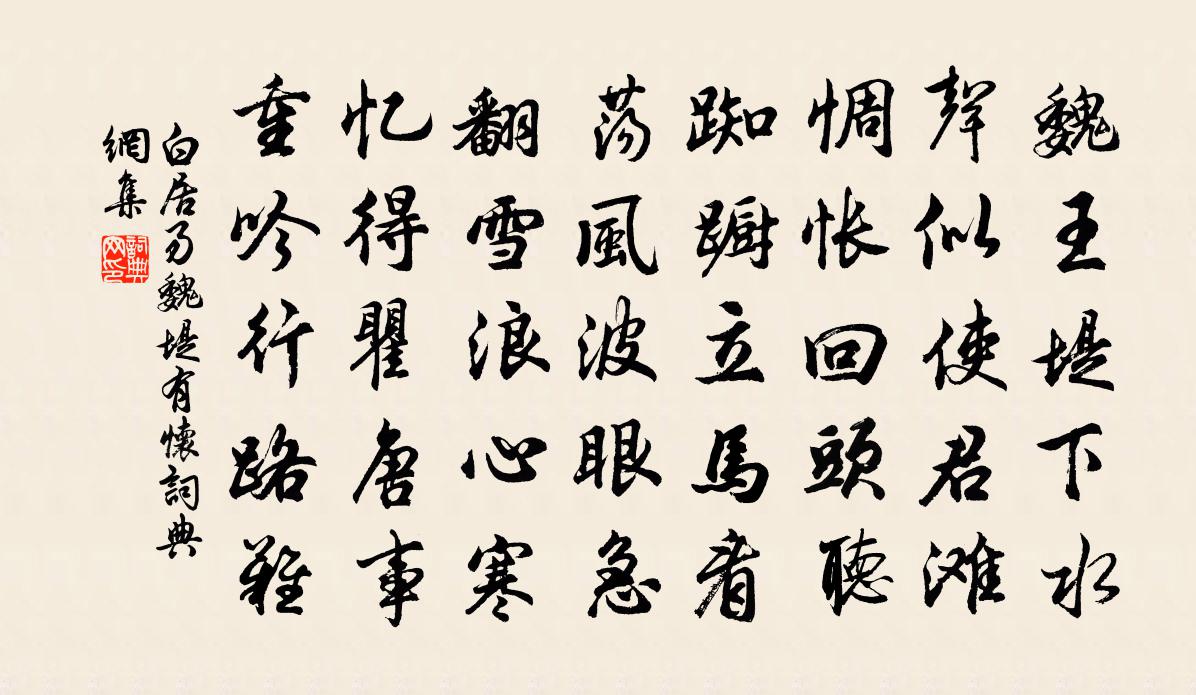 魏王堤下水
聲似使君滩
惆怅回頭聽
踟蹰立馬看
荡風波眼急
翻雪浪心寒
忆得瞿唐事
重吟行路難
白居易魏堤有懷詞典
網集
詞典
网印